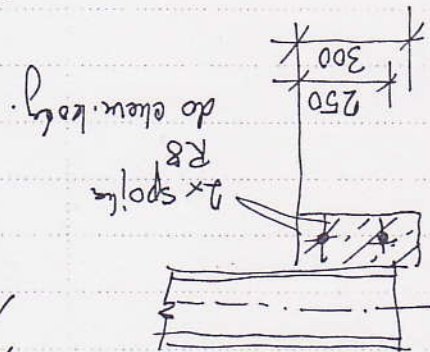 2x spojka
R8
do chem. kotvy.
250
300